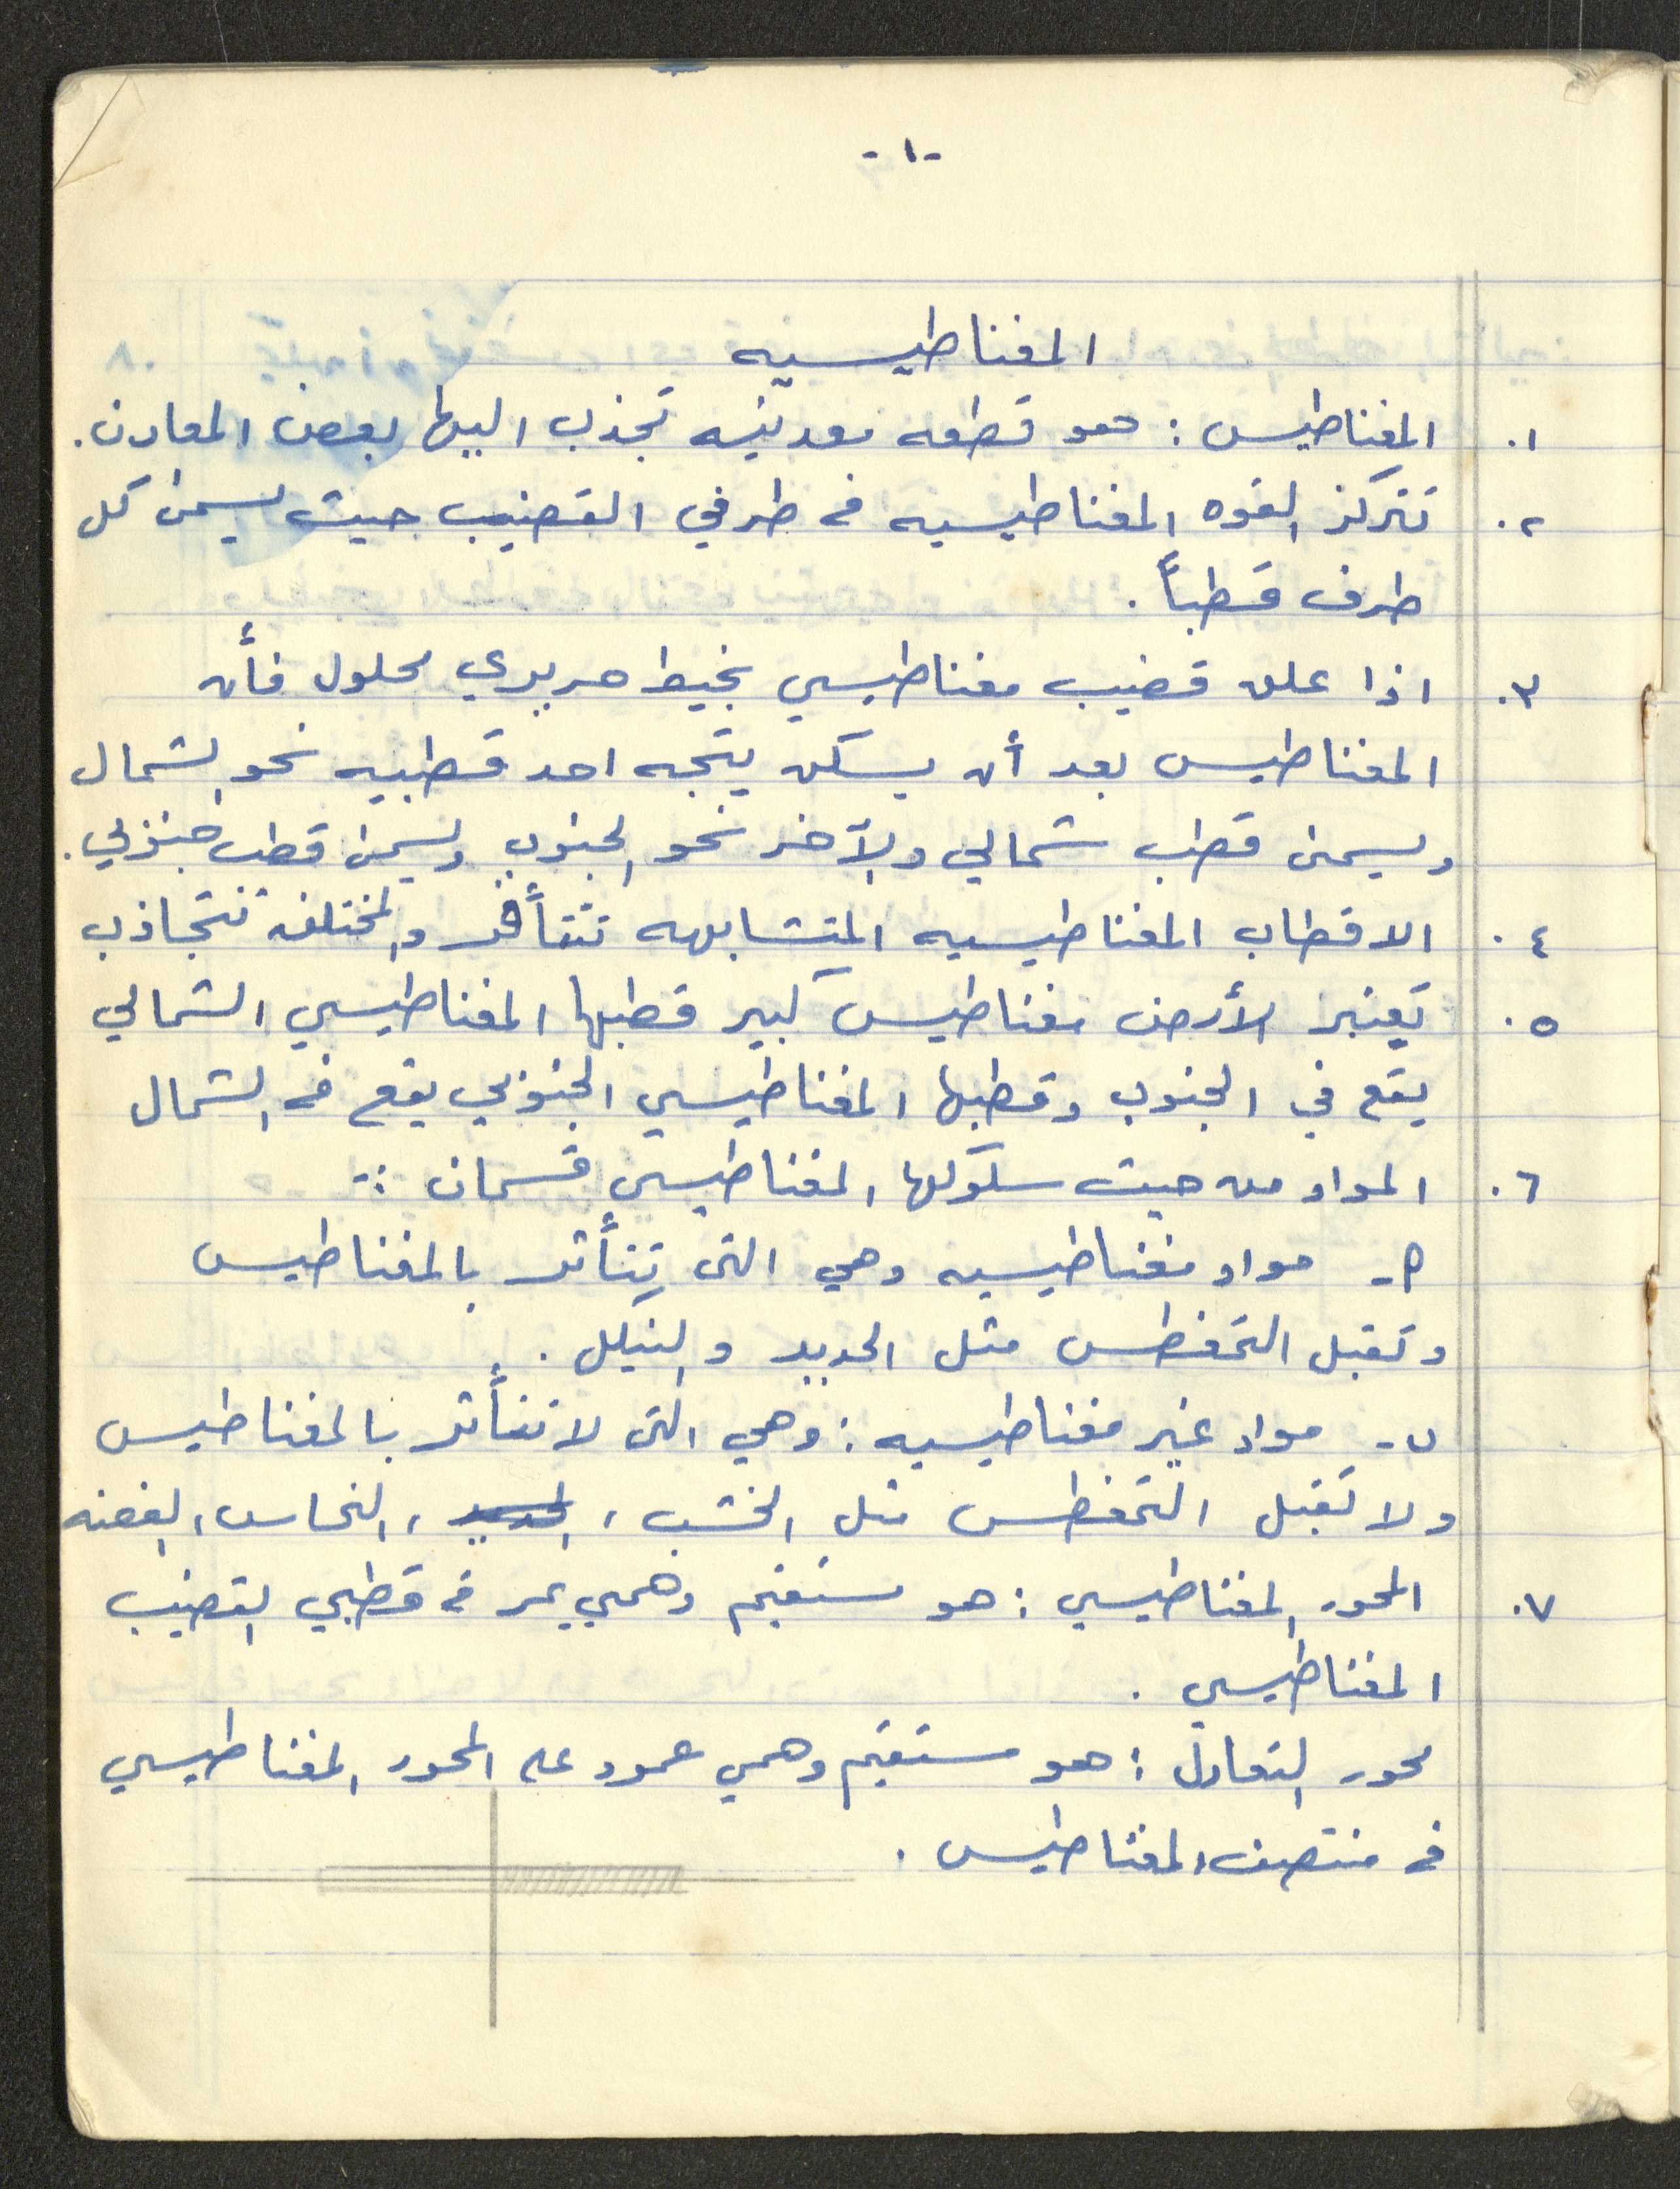 -١-
المغناطيسيه
١. المغناطيس : هو قطعه معدنيه تجذب اليها بعض المعادن.
٢. تتركز القوه المغناطيسيه في طرفي القضيب حيث يسمى كل
طرف قطباً .
٣. اذا علق قضيب مغناطيسي بخيط حريري محلول فأن
المغناطيس بعد أن يسكن يتجه احد قطبيه نحو الشمال
ويسمى قطب شمالي والآخر نحو الجنوب ويسمى قطب جنوبي.
٤. الاقطاب المغناطيسيه المتشابهه تتنأفر والمختلفه تتجاذب
٥. تعتبر الأرض مغناطيس كبير قطبها المغناطيسي الشمالي
يقع في الجنوب وقطبها المغناطيسي الجنوبي يقع في الشمال
٦. المواد من حيث سلوكها المغناطيسي قسمان :-
P- مواد مغناطيسيه وهي التي تتأثر بالمغناطيس
وتقبل التمغطس مثل الحديد والنيكل .
ب- مواد غير مغناطيسيه : وهي التي لا تتأثر بالمغناطيس
ولا تقبل التمغطس مثل الخشب ، الحديد ، النحاس ، الفضه
٧. المحور المغناطيسي : هو مستقيم وهمي يمر في قطبي القضيب
المغناطيسي .
محور التعادل : هو مستقيم وهمي عمود على المحور المغناطيسي
في منتصف المغناطيس .